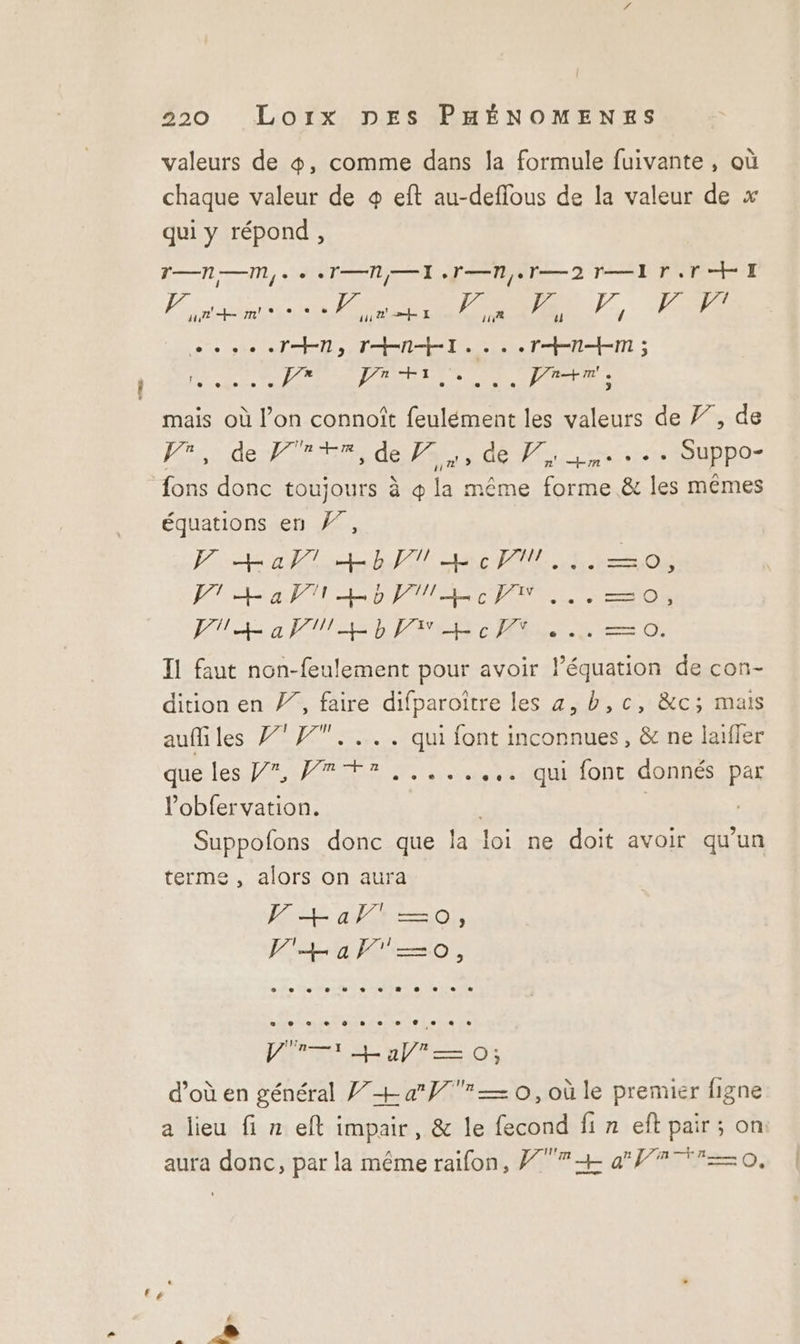 220 LOIX DES PHÉNOMENES
valeurs de φ, comme dans la formule ſuivante, où
chaque valeur de φ eſt au-deſſous de la valeur de x
qui y répond,
r—n,—m,. . .r—n,—1.r—n,.r—2 r—1 r.r+1
V,,,n'+m'. . . .V,,,n'+1 V,,,n V,, V, V V'
. . . . .r+n, r+n+1. . . . .r+n+m;
. . . . . V^n V^{n+1} . . . . V^{n+m'};
mais où l'on connoît ſeulement les valeurs de V, de
V^n, de V'''^{n+m}, de V,,n', de V,n'+m. . . . . Suppo-
ſons donc toujours à φ la même forme & les mêmes
équations en V,
V + aV' + bV'' + cV'''. . . = 0,
V' + aV'' + bV''' + cV^{IV} . . . = 0,
V'' + aV''' + bV^{IV} + cV^V . . . . = 0.
Il faut non-ſeulement pour avoir l'équation de con-
dition en V, faire diſparoître les a, b, c, &c; mais
auſſi les V' V''. . . . qui ſont inconnues, & ne laiſſer
que les V^n, V^{m+n} . . . . . . . . qui ſont donnés par
l'obſervation.
Suppoſons donc que la loi ne doit avoir qu'un
terme, alors on aura
V + aV' = 0,
V' + aV'' = 0,
. . . . . . . . . . . .
. . . . . . . . . . . .
V'''^{n—1} + aV^n = 0;
d'où en général V ± a^nV'''^n = 0, où le premier ſigne
a lieu ſi n eſt impair, & le ſecond ſi n eſt pair; on
aura donc, par la même raiſon, V'''^m ± a^nV^{m+n} = 0.